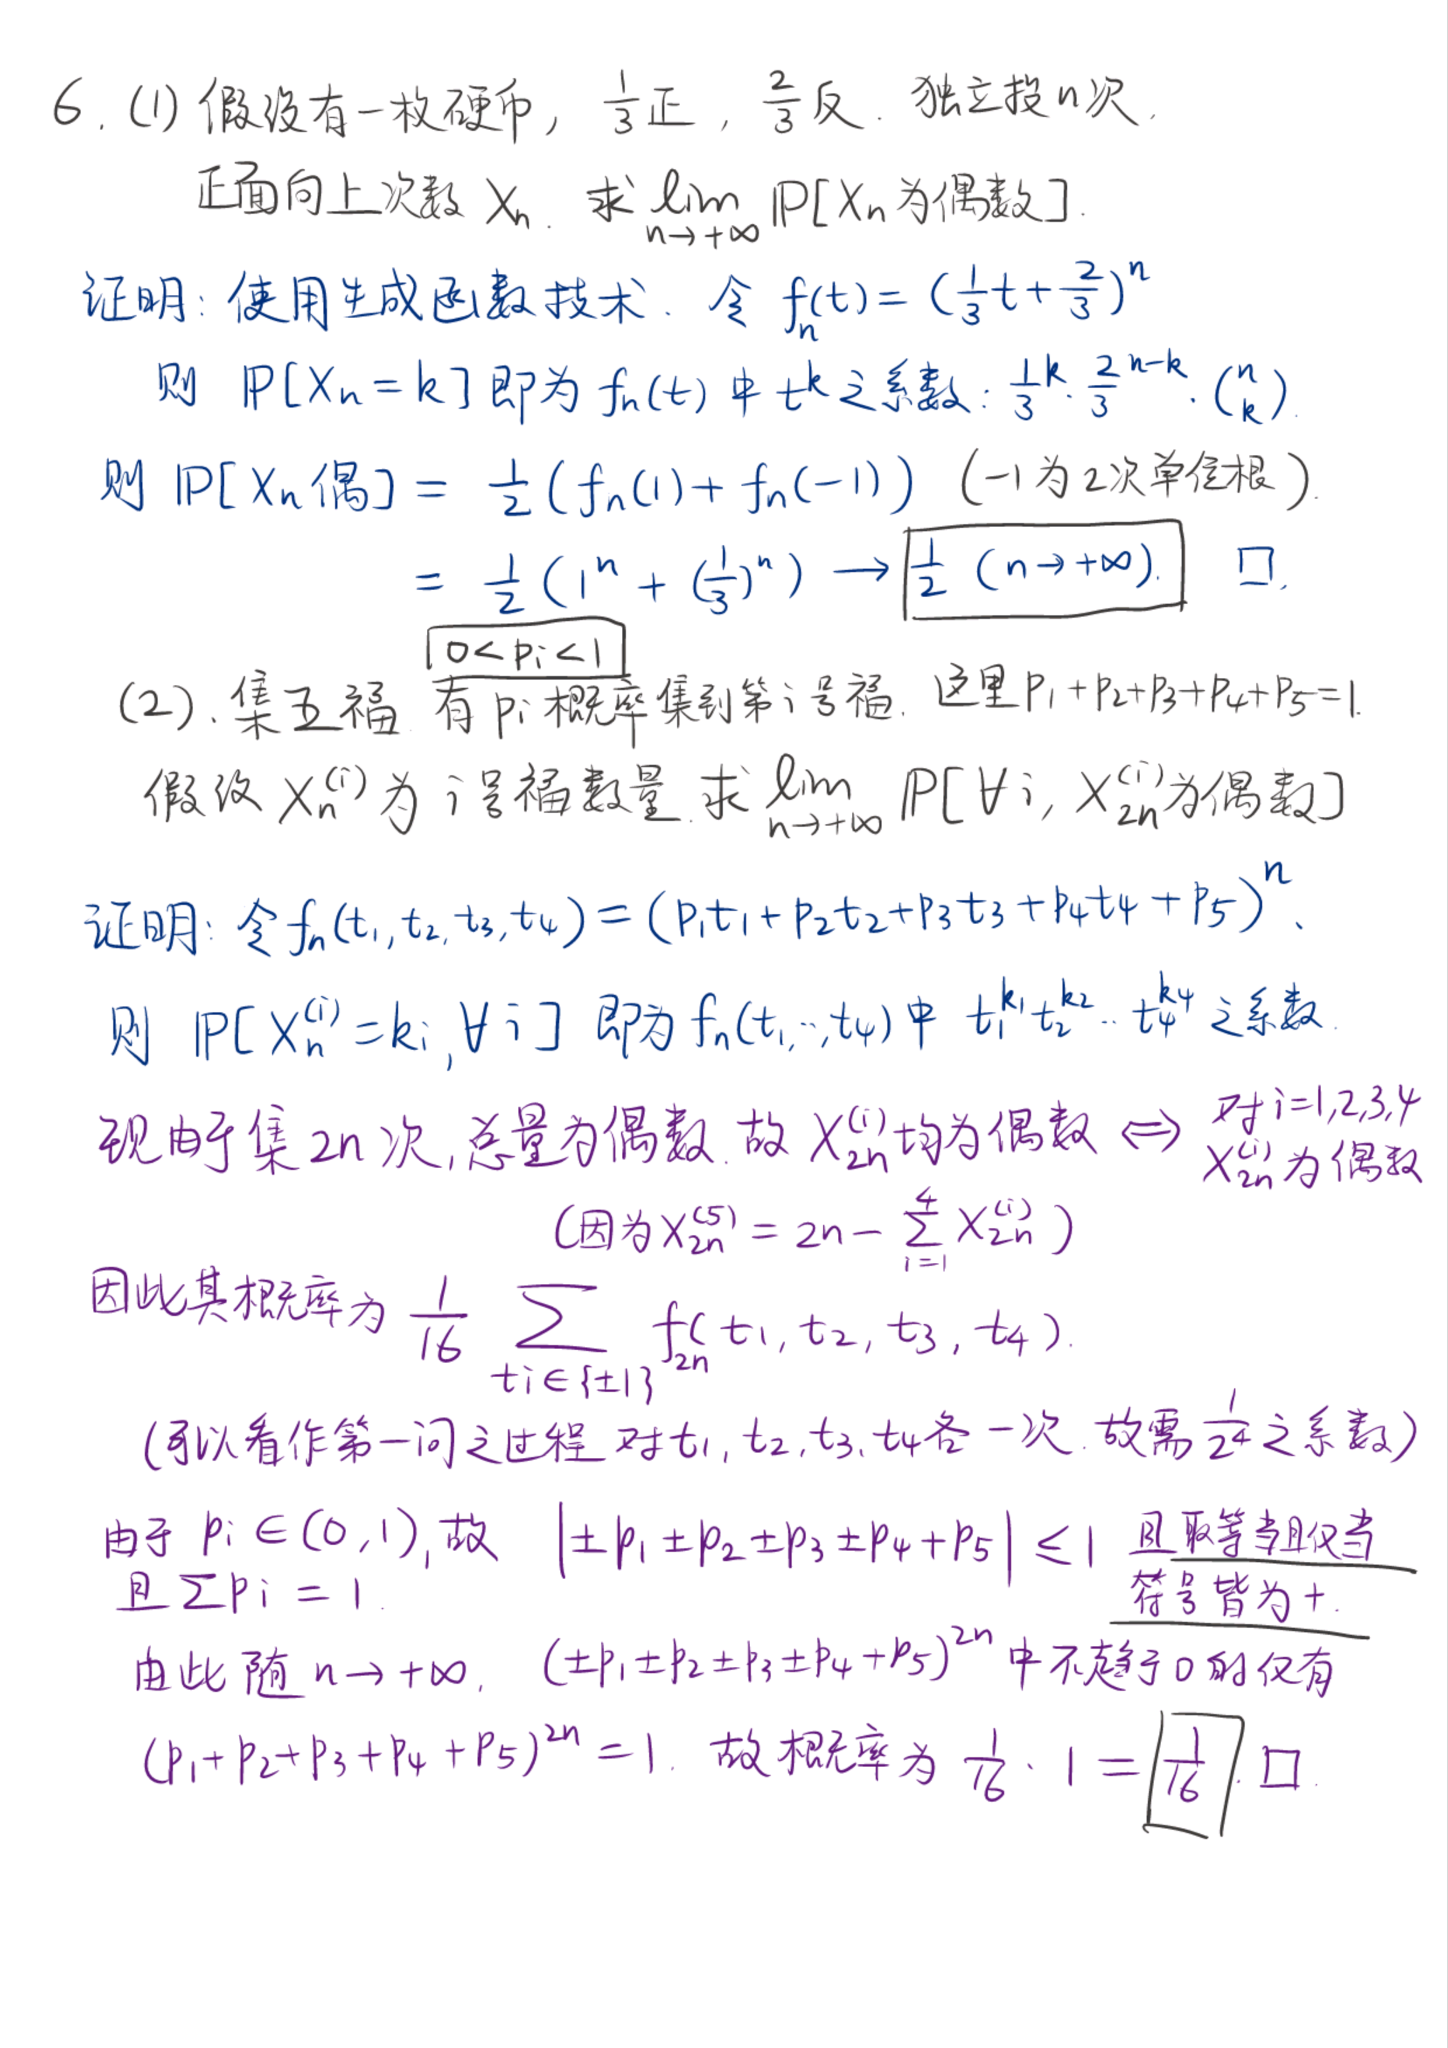 6. (1) 假设有一枚硬币, 1/3正, 2/3反. 独立投n次.
正面向上次数 Xₙ. 求 lim_{n→+∞} ℙ[Xₙ为偶数].
证明: 使用生成函数技术. 令 fₙ(t) = (1/3 t + 2/3)ⁿ
则 ℙ[Xₙ = k] 即为 fₙ(t) 中 tᵏ 之系数: 1/3ᵏ · 2/3ⁿ⁻ᵏ · (n k).
则 ℙ[Xₙ 偶] = 1/2 (fₙ(1) + fₙ(-1)) (-1为2次单位根).
= 1/2 (1ⁿ + (1/3)ⁿ) → 1/2 (n→+∞). □.
0<pi<1
(2). 集五福 有 pi 概率集到第 i 号福. 这里 p₁+p₂+p₃+p₄+p₅=1.
假设 Xₙ⁽ⁱ⁾ 为 i 号福数量. 求 lim_{n→+∞} ℙ[∀i, X₂ₙ⁽ⁱ⁾为偶数]
证明: 令 fₙ(t₁,t₂,t₃,t₄) = (p₁t₁+p₂t₂+p₃t₃+p₄t₄+p₅)ⁿ.
则 ℙ[Xₙ⁽ⁱ⁾=ki, ∀i] 即为 fₙ(t₁,..,t₄) 中 t₁^{k₁} t₂^{k₂} .. t₄^{k₄} 之系数.
现由于集 2n 次, 总量为偶数. 故 X₂ₙ⁽ⁱ⁾ 均为偶数 ⟺ 对 i=1,2,3,4 X₂ₙ⁽ⁱ⁾ 为偶数
(因为 X₂ₙ⁽⁵⁾ = 2n - ∑_{i=1}^{4} X₂ₙ⁽ⁱ⁾)
因此其概率为 1/16 ∑_{ti∈{±1}} f₂ₙ(t₁, t₂, t₃, t₄).
(可以看作第一问之过程 对 t₁, t₂, t₃, t₄ 各一次. 故需 1/2⁴ 之系数)
由于 pi ∈ (0,1), 故 |±p₁±p₂±p₃±p₄+p₅| ≤ 1 且取等当且仅当
且 ∑pi = 1. 符号皆为+.
由此随 n→+∞, (±p₁±p₂±p₃±p₄+p₅)²ⁿ 中不趋于0的仅有
(p₁+p₂+p₃+p₄+p₅)²ⁿ = 1. 故概率为 1/16 · 1 = 1/16. □.